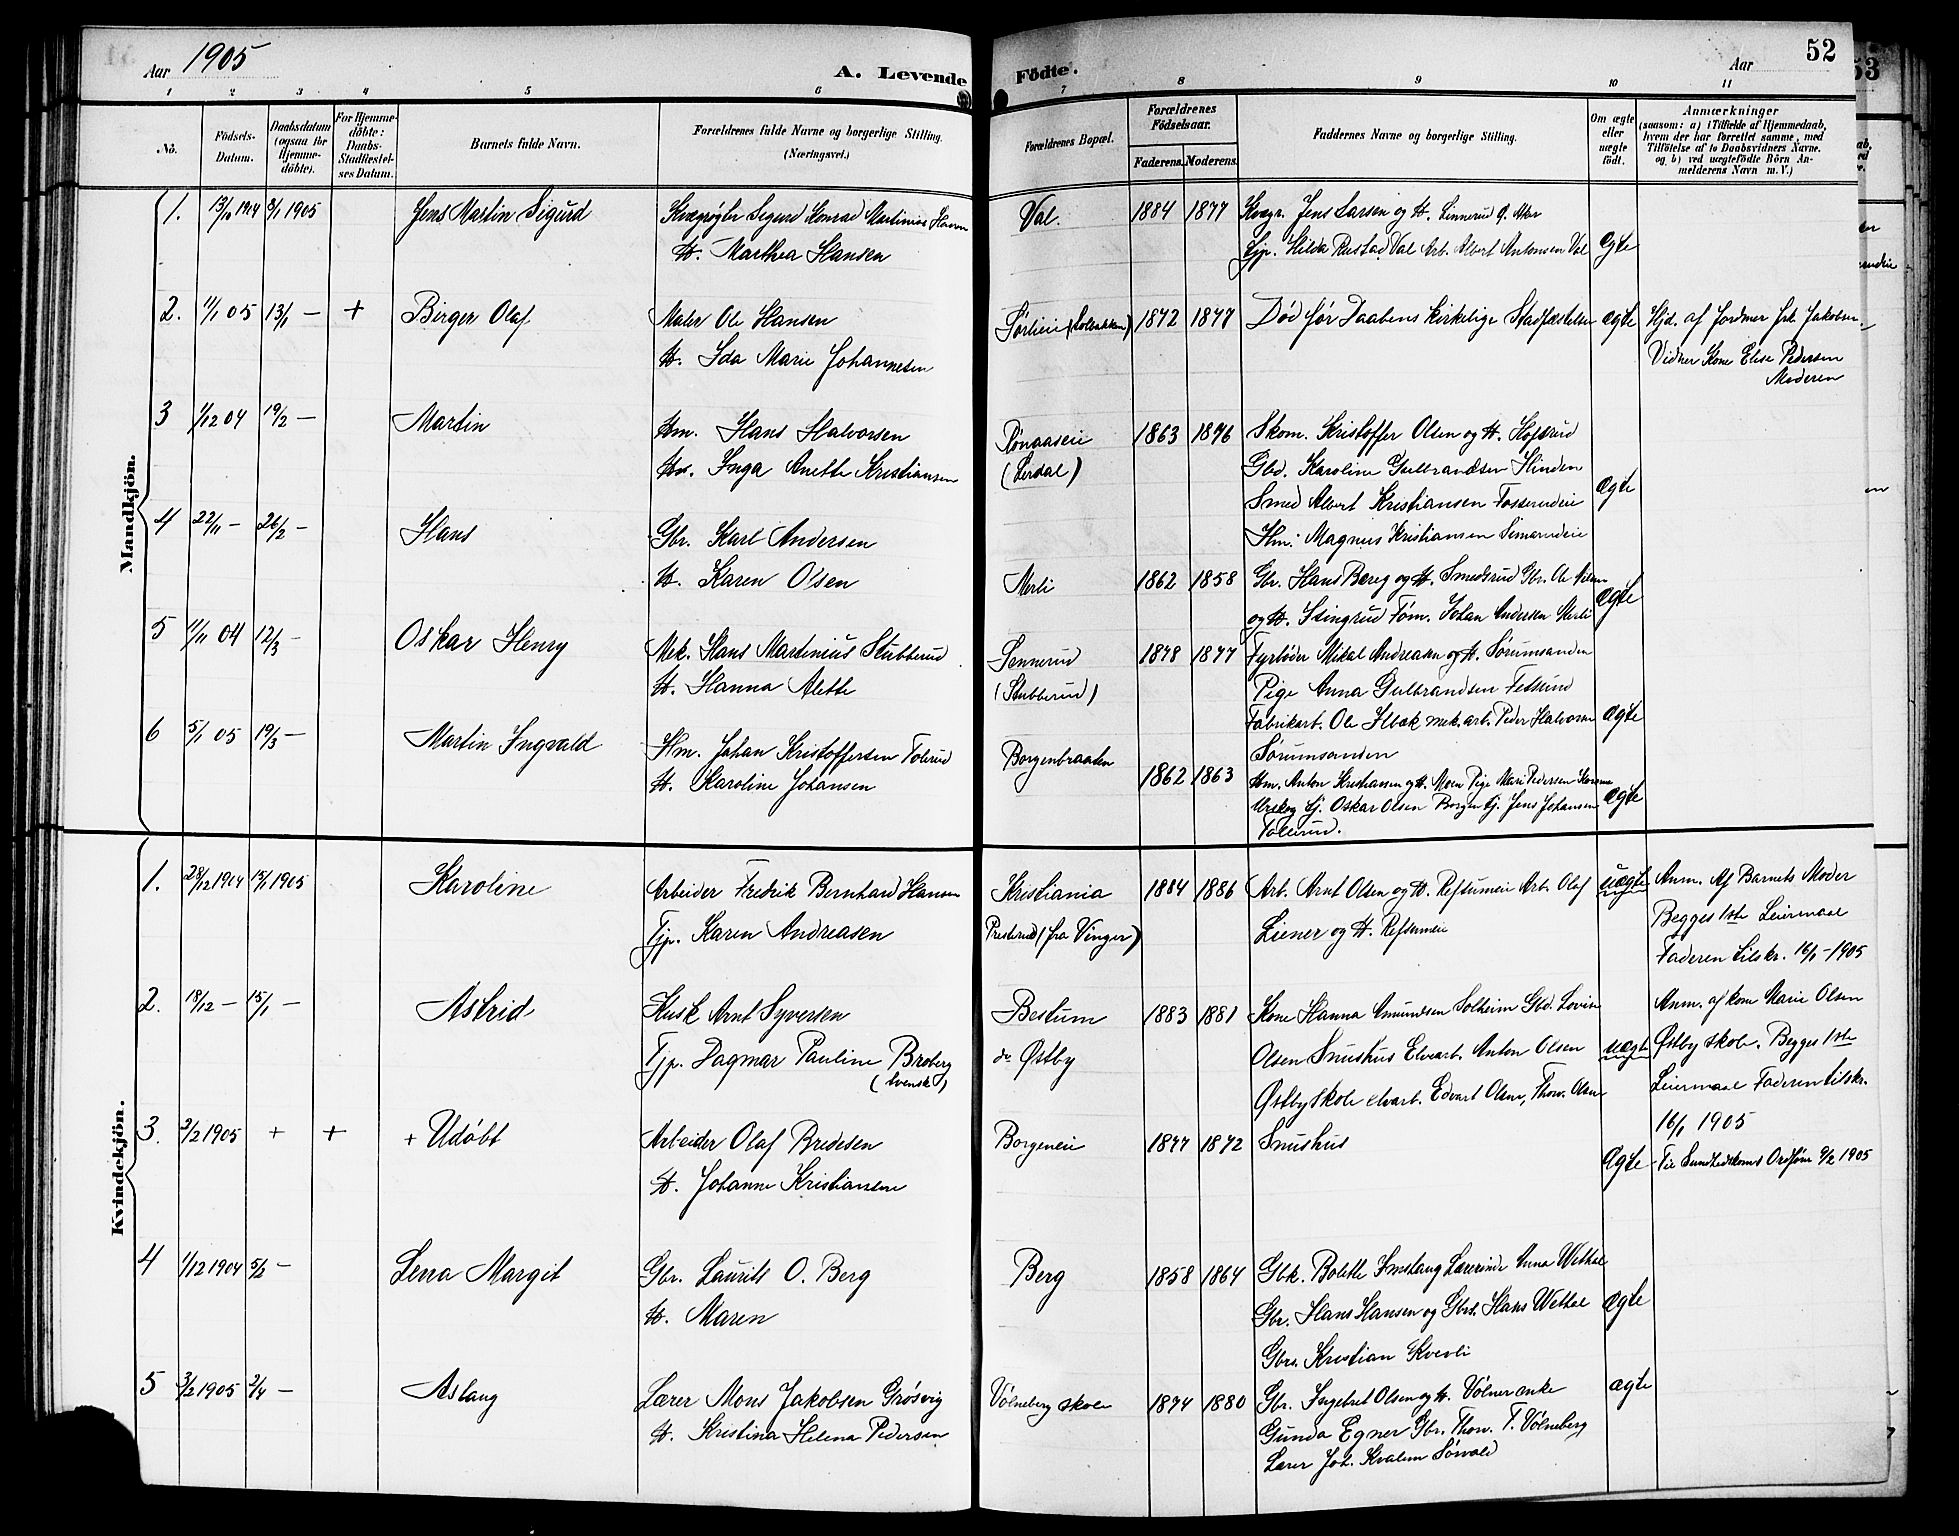 Aar 1905
A. Levende
Fødte.
Aar
52
53
1 2 3 4 5 6 7 8 9 10 11
No.
Fødsels-
Datum.
Daabsdatum
(ogsaa for
Hjemme-
døbte).
For Hjemme-
døbte:
Daabs-
Stadfæstel-
ses Datum.
Barnets fulde Navn.
Forældrenes fulde Navne og borgerlige Stilling.
(Næringsvei.)
Forældrenes Bopæl.
Forældrenes
Fødselsaar.
Faderens. Moderens.
Faddernes Navne og borgerlige Stilling.
Om ægte
eller
uægte
født.
Anmærkninger
(saasom: a) i Tilfælde af Hjemmedaab,
hvem der har forrettet samme, med
Tilføielse af to Daabsvidners Navne.
og b) ved uægtefødte Børn An-
melderens Navn m. V.)
Mandkjön.
1. 1904 8/1 1905 Jens Martin Sigurd Sigurd Konrad Martinius Hansen Val. 1884 1877 Jens Larsen og H. Linnerud
H. Marthea Hansen Tjp. Hilda Rustad Val Arb. Albert Antonsen Val ægte
2. 11/1 05 13/1 — + Birger Olaf Maler Ole Hansen Sørlieie 1872 1877 Død før Daabens kirkelige Stadfæstelse ægte Hjd. af Jordmor Jakobsen
H. Ida Marie Johannesen Vidner Kone Elise Pedersen
Moderen
3 1/12 04 19/2 — Martin Hm. Hans Halvorsen 1863 1876 Skom. Kristoffer Olsen og H. Hofsrud
Inga Anette Kristiansen (Lerdal) Gbd. Karoline Gulbrandsen Hinden
Smed Albert Kristiansen Fosserudeie ægte
4 22/11 — 26/2 — Hans Gbr. Karl Andersen Hm. Magnus Kristiansen
H. Karen Olsen Merli 1862 1858 Gbr. Hans Berg og H. Smedsrud Gbr. Ole
og H. Stingrud Tøm. Johan Andersen Merli ægte
5 11/11 04 12/3 — Oskar Henry Mek. Hans Martinius Stubberud Sennerud 1878 1877 Fyrbøder Mikal Andreasen og H. Sørumsanden
H. Hanna Alette (Stubberud) Pige Anna Gulbrandsen Fetsund
Fabrikarb. Ole Ilbæk mek. arb. Peder Halvorsen ægte
Sørumsanden
6 5/1 05 19/3 — Martin Ingvald Hm. Johan Kristoffersen Tolerud Borgenbraaten
H. Karoline Johansen 1862 1863 Hm. Anton Kristiansen og H. Moen Pige Mari Pedersen
Urskog Gj. Oskar Olsen Borgen Gj. Jens Johansen ægte
Tolerud.
Kvindekjön.
1. 28/12 1904 15/1 1905 Karoline Arbeider Fredrik Bernhard Hansen Kristiania 1884 1886 Arb. Arnt Olsen og H. Refsumeie Arb. Olaf uægte Anm. Af Barnets Moder
Tjp. Karen Andreasen Presterud (fra Vinger) Liener og H. Refsumeie Begges 1ste Leiermaal
Faderen tilskr. 16/1 - 1905
2. 18/12 — 15/1 — Astrid Kusk Arnt Syversen Bestum 1883 1881 Kone Hanna Amundsen Solheim Gbd. Lovise Anm. af kone Marie Olsen
Tjp. Dagmar Pauline Broberg Østby Olsen Snushus Elvearb. Anton Olsen uægte Østby skole. Begges 1ste
(svensk) Østby skole elvearb. Edvart Olsen, Thorv. Olsen Leiermaal Faderen tilskr.
16/1 1905
3. 2/2 1905 + + + Udøbt Arbeider Olaf Bredesen Borgeneie 1877 1872 Snushus
H. Johanne Kristiansen ægte Til Sundhedskoms Ordfører 9/2 1905
4 1/12 1904 5/2 — Lena Margit Gbr. Laurits O. Berg Berg 1858 1864 Gbk. Bolette Lærerinde Anna Wethal
H. Maren Gbr. Hans Hansen og Gbrs. Hans Wethal ægte
Gbrs. Kristian Kvevli
5 3/2 1905 2/4 — Aslaug Lærer Mons Jakobsen Grøsvig Vølneberg skole 1874 1880 Gbr. Ingebret Olsen og H. Vølner enke ægte
H. Kristina Helena Pedersen Gunda Egner Gbr. Thorv. T. Vølneberg
Lærer Joh. Kvalum Sørvald